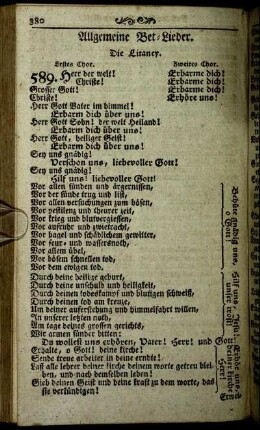 380
Allgemeine Bet-Lieder.
Die Litaney.
Erstes Chor. Zweites Chor.
589. Herr der welt! Erbarme dich!
Christe! Erbarme dich!
Grosser Gott! Erbarme dich!
Christe! Erhöre uns!
Herr Gott Vater im himmel!
Erbarm dich über uns!
Herr Gott Sohn! der welt Heiland!
Erbarm dich über uns!
Herr Gott, heiliger Geist!
Erbarm dich über uns!
Sey uns gnädig!
Verschon uns, liebevoller Gott!
Sey uns gnädig!
Hilf uns! liebevoller Gott!
Vor allen sünden und ärgernissen,
Vor der sünde trug und list,
Vor allen versuchungen zum bösen,
Vor pestilenz und theurer zeit,
Vor krieg und blutvergiessen,
Vor aufruhr und zwietracht,
Vor hagel und schädlichem gewitter,
Vor feur- und wassersnoth,
Vor allem übel,
Vor bösem schnellen tod,
Vor dem ewigen tod.
Behüte gnädig uns, o Gott!
Durch deine heilige geburt,
Durch deine unschuld und heiligkeit,
Durch deinen todeskampf und blutigen schweiß,
Durch deinen tod am kreuz,
Um deiner auferstehung und himmelfahrt willen,
In unserer letzten noth,
Am tage deines grossen gerichts,
Hilf uns, Jesu, unser trost!
Wir armen sünder bitten:
Du wollest uns erhören, Vater! Herr! und Gott
Erhalte, o Gott! deine kirche!
Sende treue arbeiter in deine erndte!
Laß alle lehrer deiner kirche deinem worte getreu bleiben, und nach demselben leben!
Gieb deinen Geist und deine kraft zu dem worte, das
sie verkündigen!
Erhöre uns,